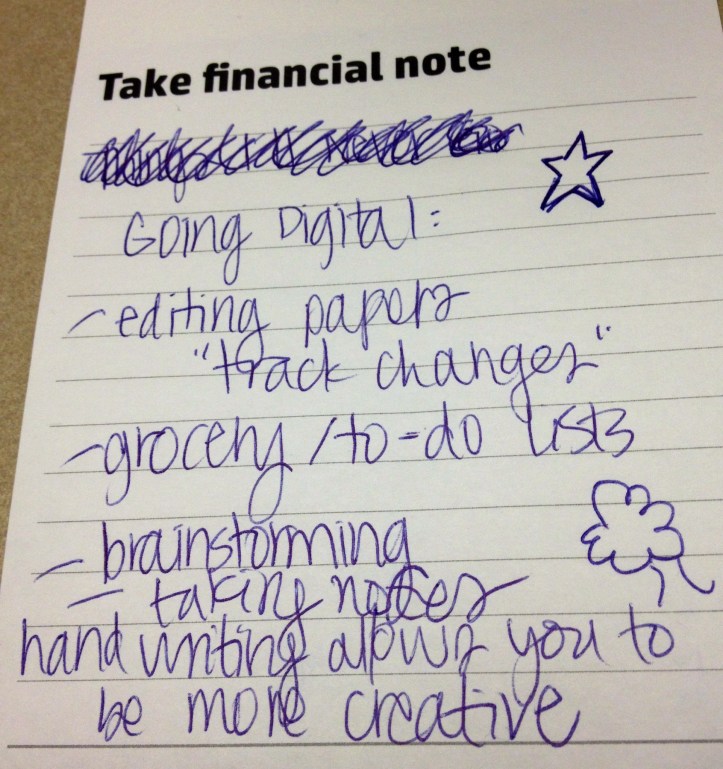 Take financial note
Going Digital:
- editing papers
"track changes"
- grocery /to-do lists
- brainstorming
- taking notes
handwriting allows you to
be more creative